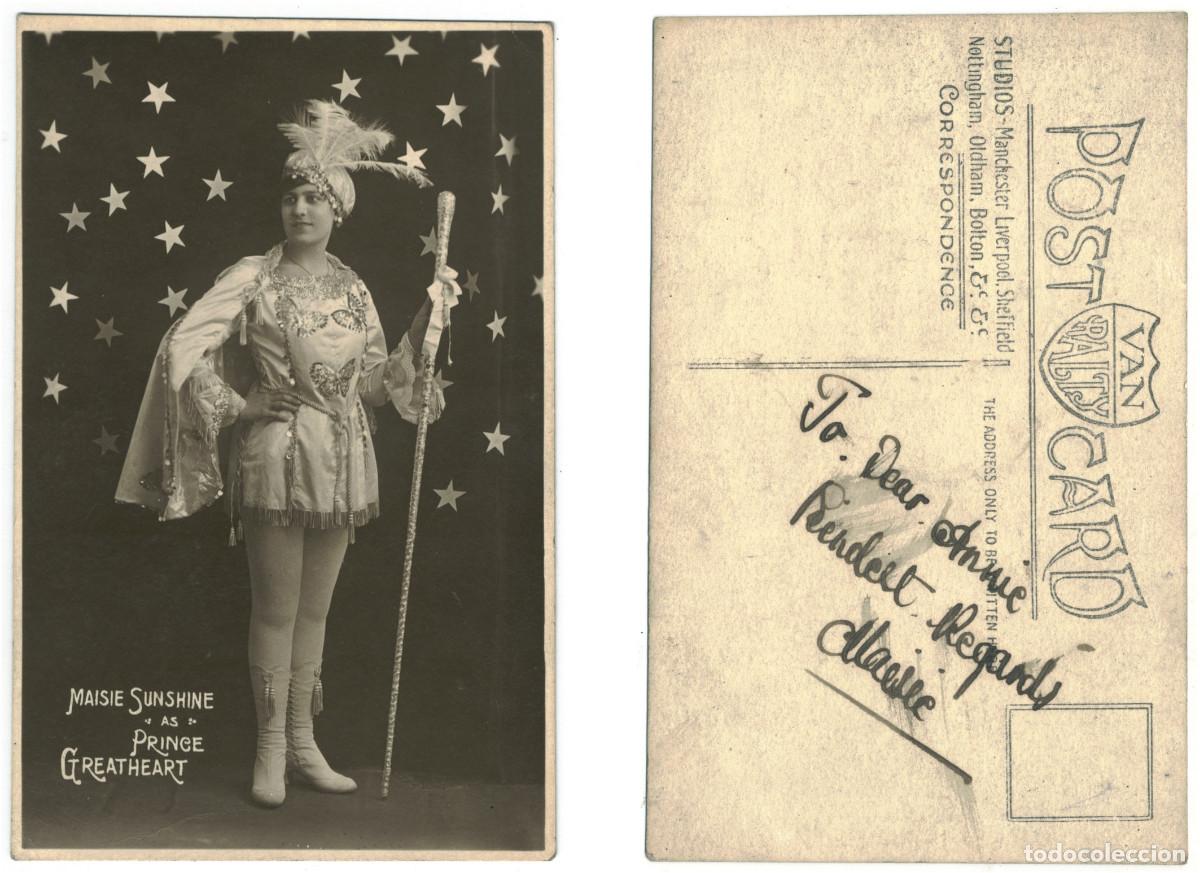 MAISIE SUNSHINE
AS
PRINCE
GREATHEART
POST CARD
VAN
RALTY
STUDIOS - Manchester Liverpool, Sheffield
Nottingham, Oldham, Bolton, &c. &c
CORRESPONDENCE
THE ADDRESS ONLY TO BE WRITTEN H
To. Dear Annie
Kindest. Regards
Maisie
todocoleccion